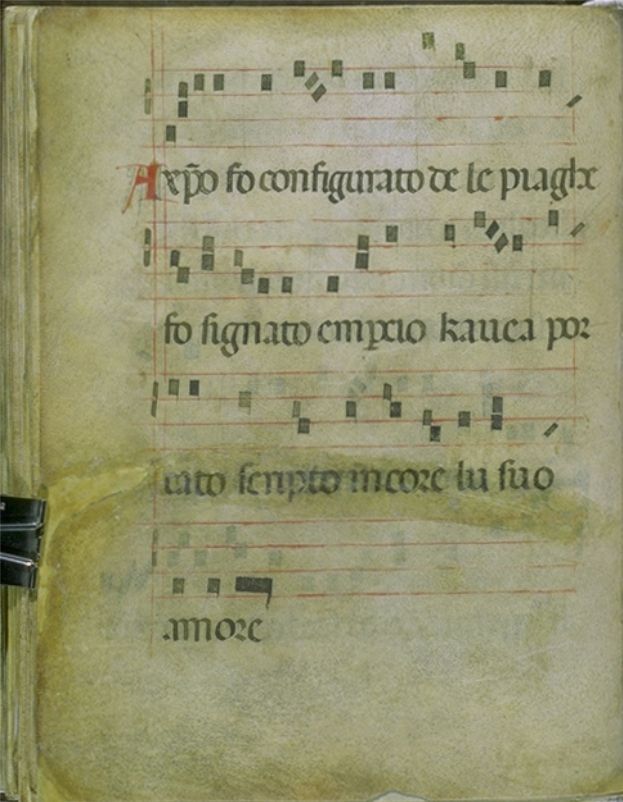 A xp̄o fo configurato de le piaghe
fo signato empꝛcio kauea por
tato scripto in core lu suo
amore